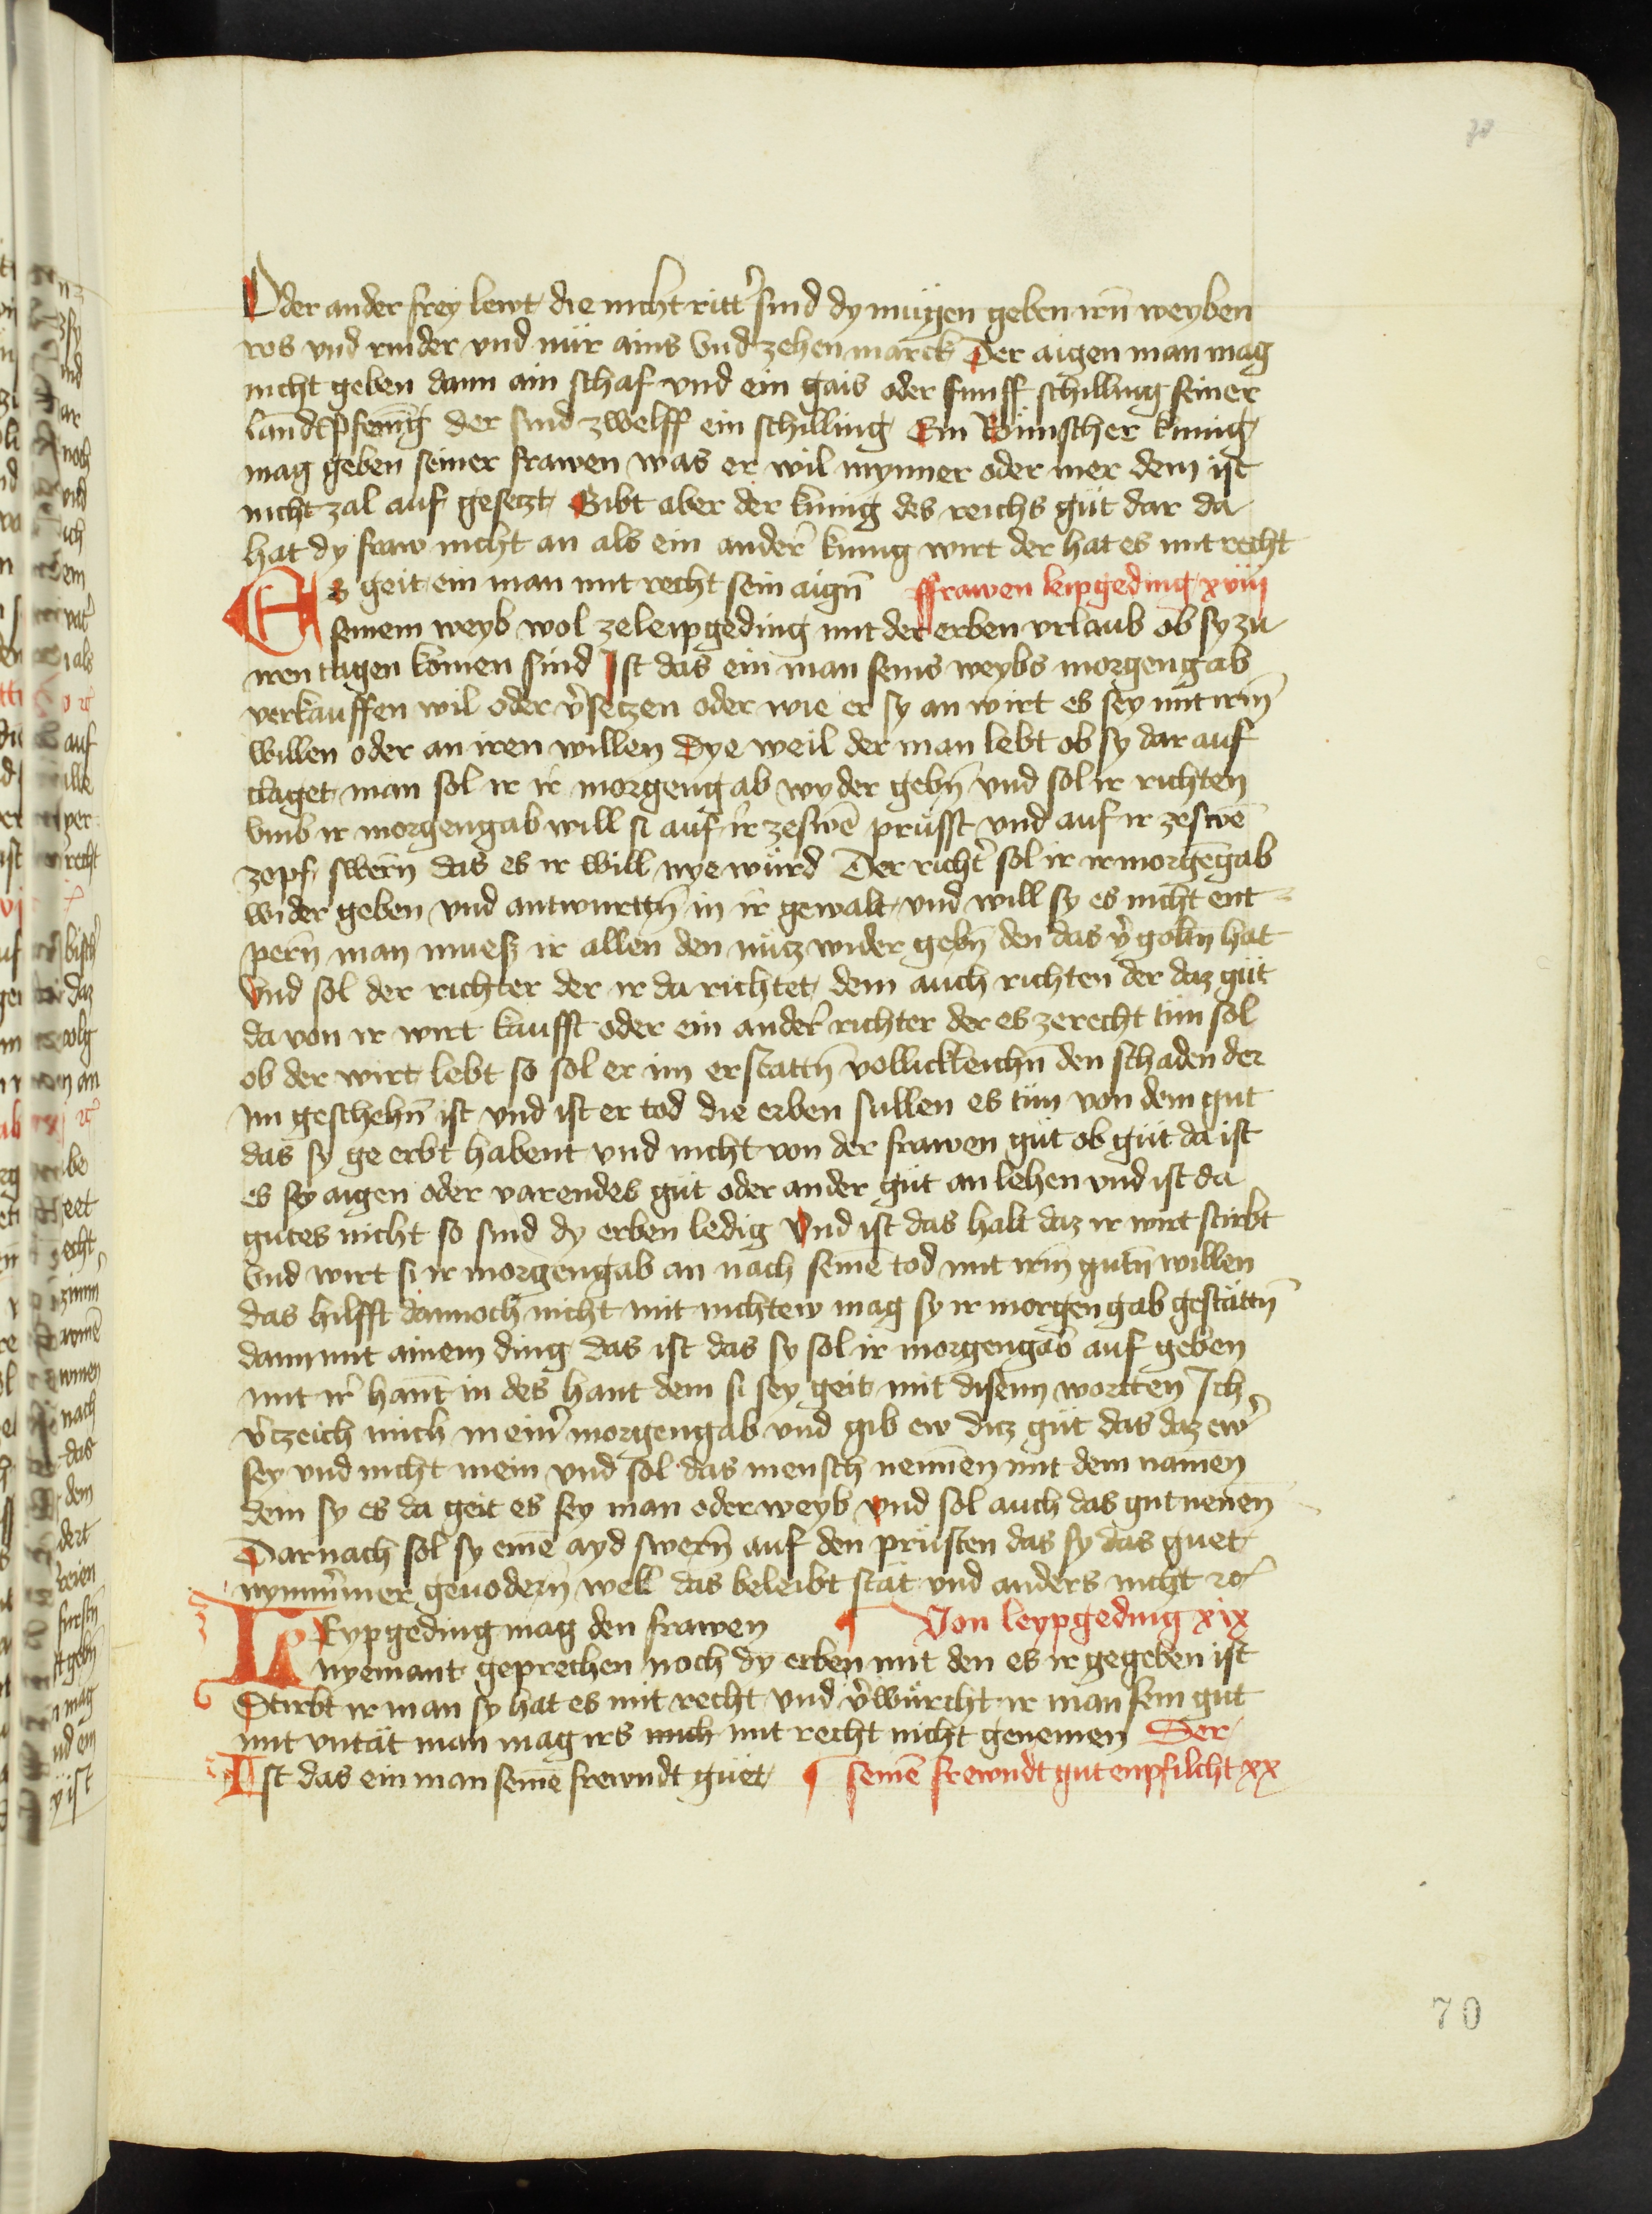 70
Oder ander frey lewt die nicht ritt͛ sind dy mugen geben irn̄ weyben
ros vnd rinder vnd nür ains vnd zehen marck Der aigen man mag
nicht geben dann ain schaf vnd ein gais oder funff schilling seiner
landtpfennīg der sind zwelff ein schilling Ein Römischer kunig
mag geben seiner frawen was er wil mynner oder mer dem ist
nicht zal auf gesetzt Gibt aber der kunig des reichs güt dar da
hat dy fraw nicht an als ein ander͛ kunig wirt der hat es mit recht
Es geit ein man mit recht sein aign̄ Frawen leipgeding xviii
seinem weyb wol ze leipgeding mit der erben vrlaub ob sy zu
iren tagen komen sind Ist das ein man seins weybs morgengab
verkauffen wil oder v͛setzen oder wie er sy an wirt es sey mit irm̄
willen oder an iren willen Dye weil der man lebt ob sy dar auf
claget man sol ir ir morgengab wyder gebn̄ vnd sol ir richten
vmb ir morgengab will si auf ir zeswē prüsst vnd auf ir zeswē
zopf swern̄ das es ir will nye würd Der richt͛ sol ir ir morgēgab
wider geben vnd antwurttn̄ in ir gewalt vnd will sy es nicht ent
pern̄ man mueß ir allen den nütz wider gebn̄ den das v͛goltn̄ hat
Vnd sol der richter der ir da richtet dem auch richten der daz güt
da von ir wirt kaufft oder ein ander͛ richter der es zerecht tün sol
ob der wirt lebt so sol er im erstattn̄ vollickleichn̄ den schaden der
im geschehn̄ ist vnd ist er tod die erben sullen es tün von dem gut
das sy ge erbt habent vnd nicht von der frawen güt ob güt da ist
es sey aigen oder varendes güt oder ander güt an lehen vnd ist da
gutes nicht so sind dy erben ledig Vnd ist das halt daz ir wirt stirbt
Vnd wirt si ir morgengab an nach seinē tod mit irm̄ gutn̄ willen
das hilfft dannoch nicht mit nichtew mag sy ir morgengab gestättn̄
dann mit ainem ding das ist das sy sol ir morgengab auf geben
mit ir͛ hant in des hant dem si sey geit mit disenn wortten Ich
v͛tzeich mich mein͛ morgengab vnd gib ew ditz güt das daz ew͛
sey vnd nicht mein vnd sol das mensch nennen mit dem namen
dem sy es da geit es sey man oder weyb vnd sol auch das gut nenen
Darnach sol sy einē ayd swern̄ auf den prüsten das sy das guet
nymm͛mer geuodern̄ well das beleibt stät vnd anders nicht rc͛
LEypgeding mag den frawen Von leypgeding xix
nyemant geprechen noch dy erben mit den es ir gegeben ist
Stirbt ir man sy hat es mit recht vnd v͛würcht ir man sein gut
mit vntät man mag irs auch mit recht nicht genemen Der
Ist das ein man seinē frewndt güet seinē frewndt gut enpfilcht xx
70